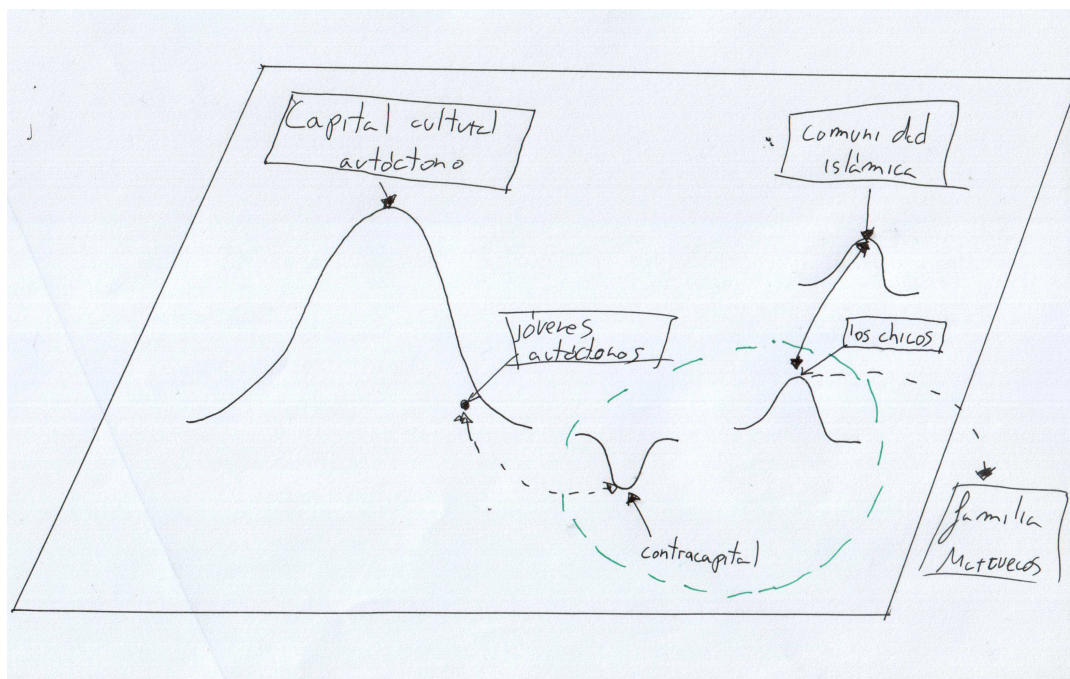 Capital cultural
autóctono
comunidad
islámica
jóvenes
autóctonos
los chicos
contracapital
familia
Marruecos